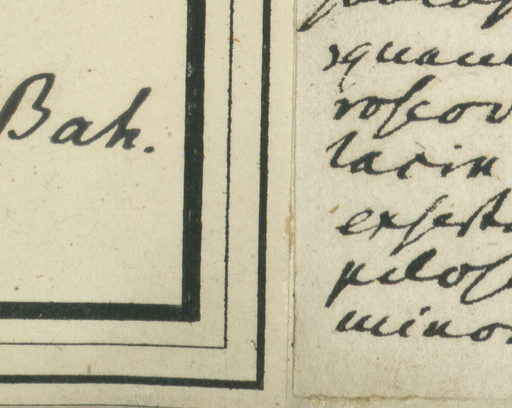 Bah.
squam
roscov
lacin
exserta
pilos
minor